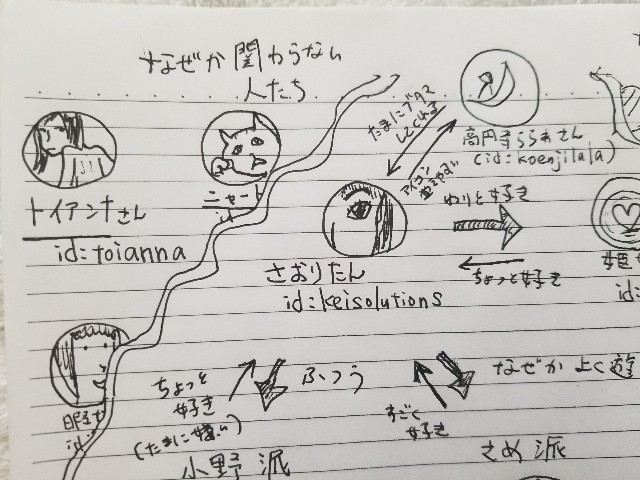 なぜか関わらない
人たち
たまにブクマ
してくれる
高円寺ららあさん
(id:koenjilala)
トイアンナさん
id:toianna
ニャート
id
さおりたん
id:keisolutions
わりと好き
ちょっと好き
id:
ちょっと
好き
(たまに嫌い)
ふつう
すごく
好き
なぜかよく遊
小野派
さめ派